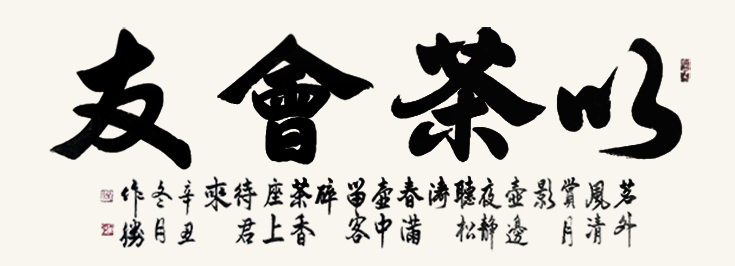 以茶會友
茗外
風清
賞月
影
壺邊
夜靜
聽松
濤
春滿
壺中
留客
醉
茶香
座上
待君
來
辛丑
冬月
作勝